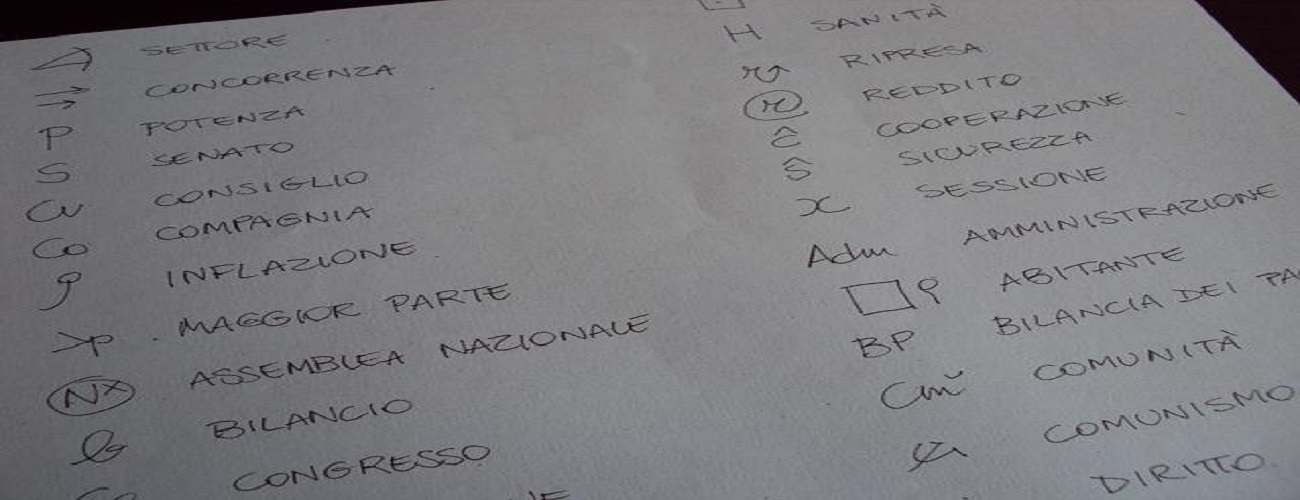 SETTORE
CONCORRENZA
P POTENZA
S SENATO
CU CONSIGLIO
Co COMPAGNIA
INFLAZIONE
>P MAGGIOR PARTE
NX ASSEMBLEA NAZIONALE
BILANCIO
CONGRESSO
H SANITÀ
RIPRESA
r REDDITO
ĉ COOPERAZIONE
ŝ SICUREZZA
x SESSIONE
Adm AMMINISTRAZIONE
ABITANTE
BP BILANCIA DEI PA
Cm COMUNITÀ
COMUNISMO
DIRITTO